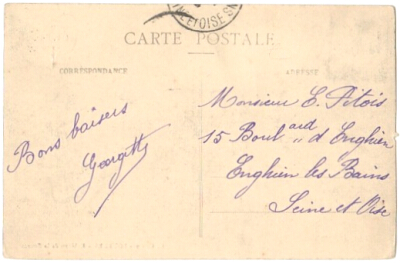 ET OISE
CARTE POSTALE
CORRESPONDANCE
ADRESSE
Bons baisers
Georgette
Monsieur E. Pitois
15 Boul ard d'Enghien
Enghien les Bains
Seine et Oise